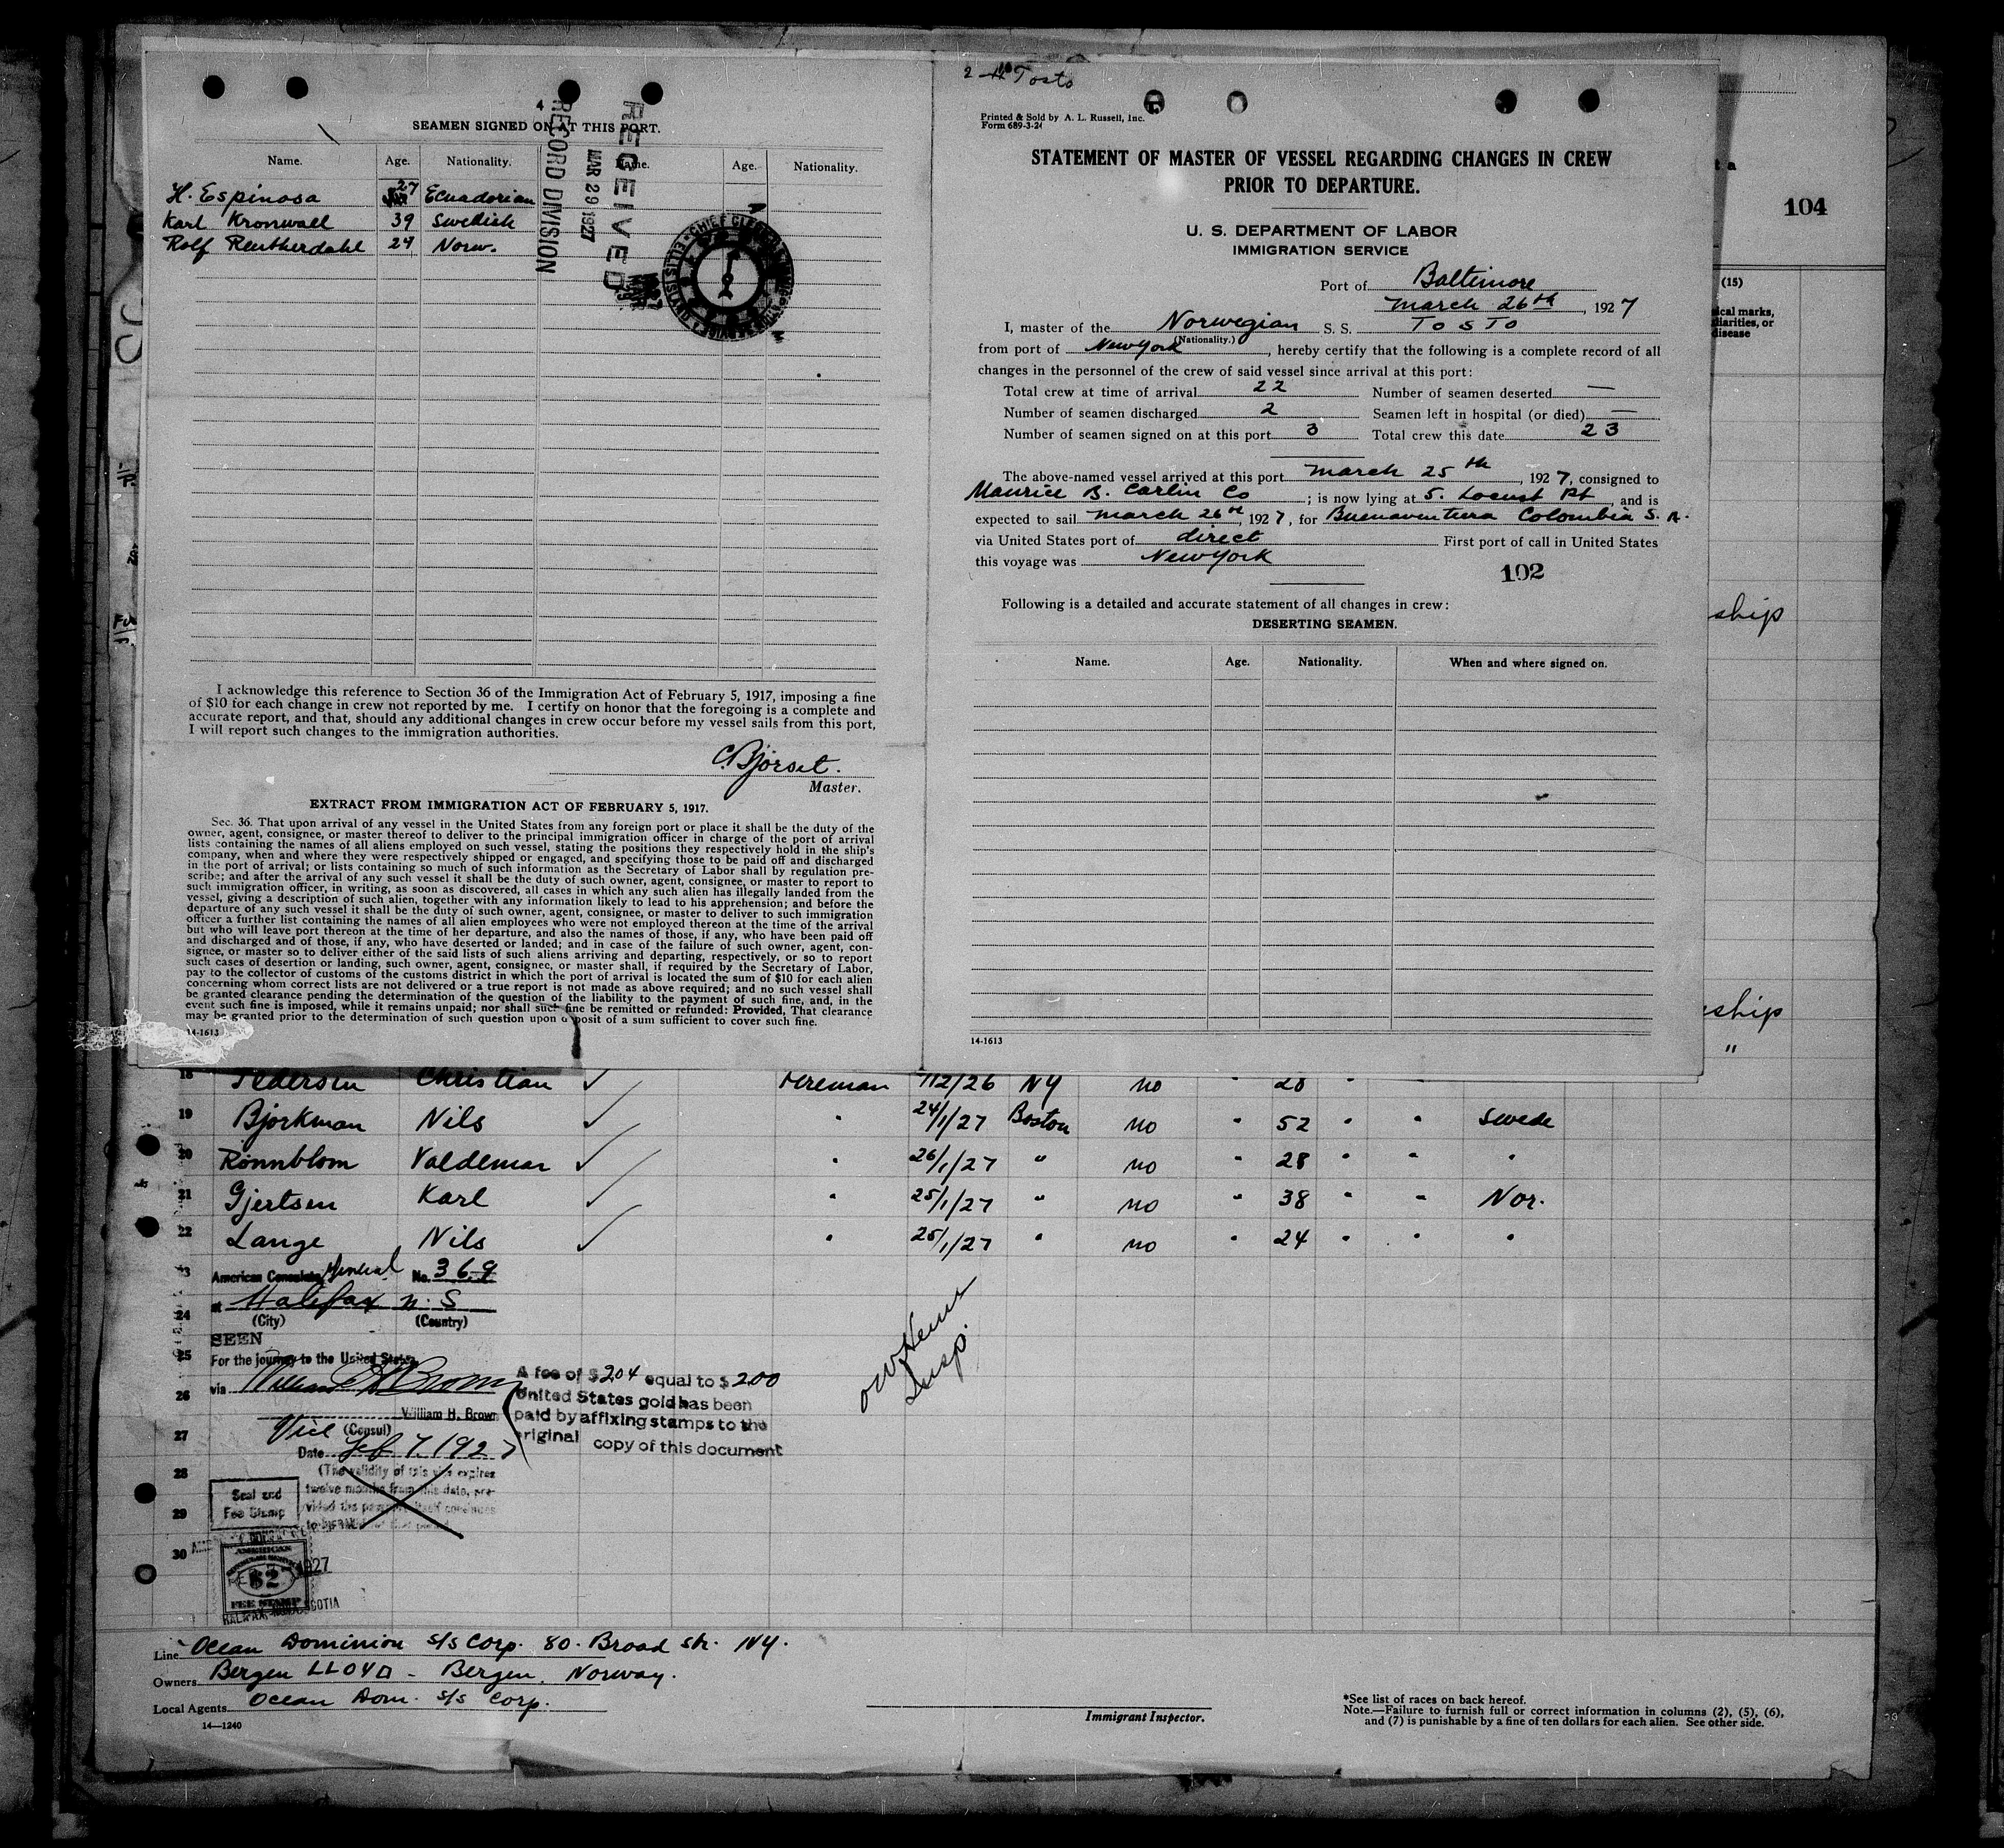 SEAMEN SIGNED ON AT THIS PORT.
Name. Age. Nationality. Name. Age. Nationality.
H. Espinosa 27 Ecuadorian
Karl Kronwall 39 Swedish
Rolf Reutherdahl 24 Norw.
RECEIVED
MAR 29 1927
RECORD DIVISION
I acknowledge this reference to Section 36 of the Immigration Act of February 5, 1917, imposing a fine
of $10 for each change in crew not reported by me. I certify on honor that the foregoing is a complete and
accurate report, and that, should any additional changes in crew occur before my vessel sails from this port,
I will report such changes to the immigration authorities.
C. Bjorset.
Master.
EXTRACT FROM IMMIGRATION ACT OF FEBRUARY 5, 1917.
Sec. 36. That upon arrival of any vessel in the United States from any foreign port or place it shall be the duty of the
owner, agent, consignee, or master thereof to deliver to the principal immigration officer in charge of the port of arrival
lists containing the names of all aliens employed on such vessel, stating the positions they respectively hold in the ship's
company, when and where they were respectively shipped or engaged, and specifying those to be paid off and discharged
in the port of arrival; or lists containing so much of such information as the Secretary of Labor shall by regulation pre-
scribe; and after the arrival of any such vessel it shall be the duty of such owner, agent, consignee, or master to report to
such immigration officer, in writing, as soon as discovered, all cases in which any such alien has illegally landed from the
vessel, giving a description of such alien, together with any information likely to lead to his apprehension; and before the
departure of any such vessel it shall be the duty of such owner, agent, consignee, or master to deliver to such immigration
officer a further list containing the names of all alien employees who were not employed thereon at the time of the arrival
but who will leave port thereon at the time of her departure, and also the names of those, if any, who have been paid off
and discharged and of those, if any, who have deserted or landed; and in case of the failure of such owner, agent, con-
signee, or master so to deliver either of the said lists of such aliens arriving and departing, respectively, or so to report
such cases of desertion or landing, such owner, agent, consignee, or master shall, if required by the Secretary of Labor,
pay to the collector of customs of the customs district in which the port of arrival is located the sum of $10 for each alien
concerning whom correct lists are not delivered or a true report is not made as above required; and no such vessel shall
be granted clearance pending the determination of the question of the liability to the payment of such fine, and, in the
event such fine is imposed, while it remains unpaid; nor shall such fine be remitted or refunded: Provided, That clearance
may be granted prior to the determination of such question upon deposit of a sum sufficient to cover such fine.
14-1613
2 Tosto
Printed & Sold by A. L. Russell, Inc.
Form 689-3-24
STATEMENT OF MASTER OF VESSEL REGARDING CHANGES IN CREW
PRIOR TO DEPARTURE.
U. S. DEPARTMENT OF LABOR
IMMIGRATION SERVICE
Port of Baltimore
March 26th, 1927
I, master of the Norwegian S. S. TOSTO
(Nationality.)
from port of New York, hereby certify that the following is a complete record of all
changes in the personnel of the crew of said vessel since arrival at this port:
Total crew at time of arrival 22 Number of seamen deserted —
Number of seamen discharged 2 Seamen left in hospital (or died) —
Number of seamen signed on at this port 3 Total crew this date 23
The above-named vessel arrived at this port March 25th, 1927, consigned to
Maurice B. Carlin Co; is now lying at S. Locust Pt, and is
expected to sail March 26th, 1927, for Buenaventura Colombia S. A.
via United States port of direct First port of call in United States
this voyage was New York
102
Following is a detailed and accurate statement of all changes in crew:
DESERTING SEAMEN.
Name. Age. Nationality. When and where signed on.
14-1613
104
(15)
disease
ship
ship
"
18 Pedersen Christian Fireman 7/12/26 NY no 28
19 Bjorkman Nils " 24/1/27 Boston no " 52 " " Swede
20 Ronnblom Valdemar " 26/1/27 " no " 28 " " "
21 Gjertsen Karl " 25/1/27 " no " 38 " " Nor.
22 Lange Nils " 25/1/27 " no " 24 " " "
American Consulate General No. 369
at Halifax N. S
24
(City) (Country)
SEEN
25 For the journey to the United States
26 via William H Brown
William H. Brown
27 Vice (Consul)
Date Feb 7, 1927
A fee of $2.04 equal to $2.00
United States gold has been
paid by affixing stamps to the
original copy of this document
Insp.
28 (The validity of this visa expires
twelve months from this date, pro-
vided the passport itself continues
Seal and
Fee Stamp
29
30
AMERICAN
$2
FEE STAMP
1927
HALIFAX, NOVA SCOTIA
Line Ocean Dominion S/S Corp. 80. Broad Str. NY.
Owners Bergen LLOYD - Bergen, Norway.
Local Agents Ocean Dom. S/S Corp.
14—1240
Immigrant Inspector.
*See list of races on back hereof.
Note.—Failure to furnish full or correct information in columns (2), (5), (6),
and (7) is punishable by a fine of ten dollars for each alien. See other side.